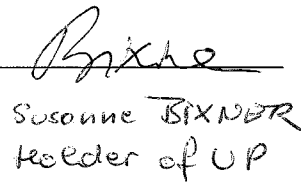 Bixne
Susanne BIXNER
Holder of UP